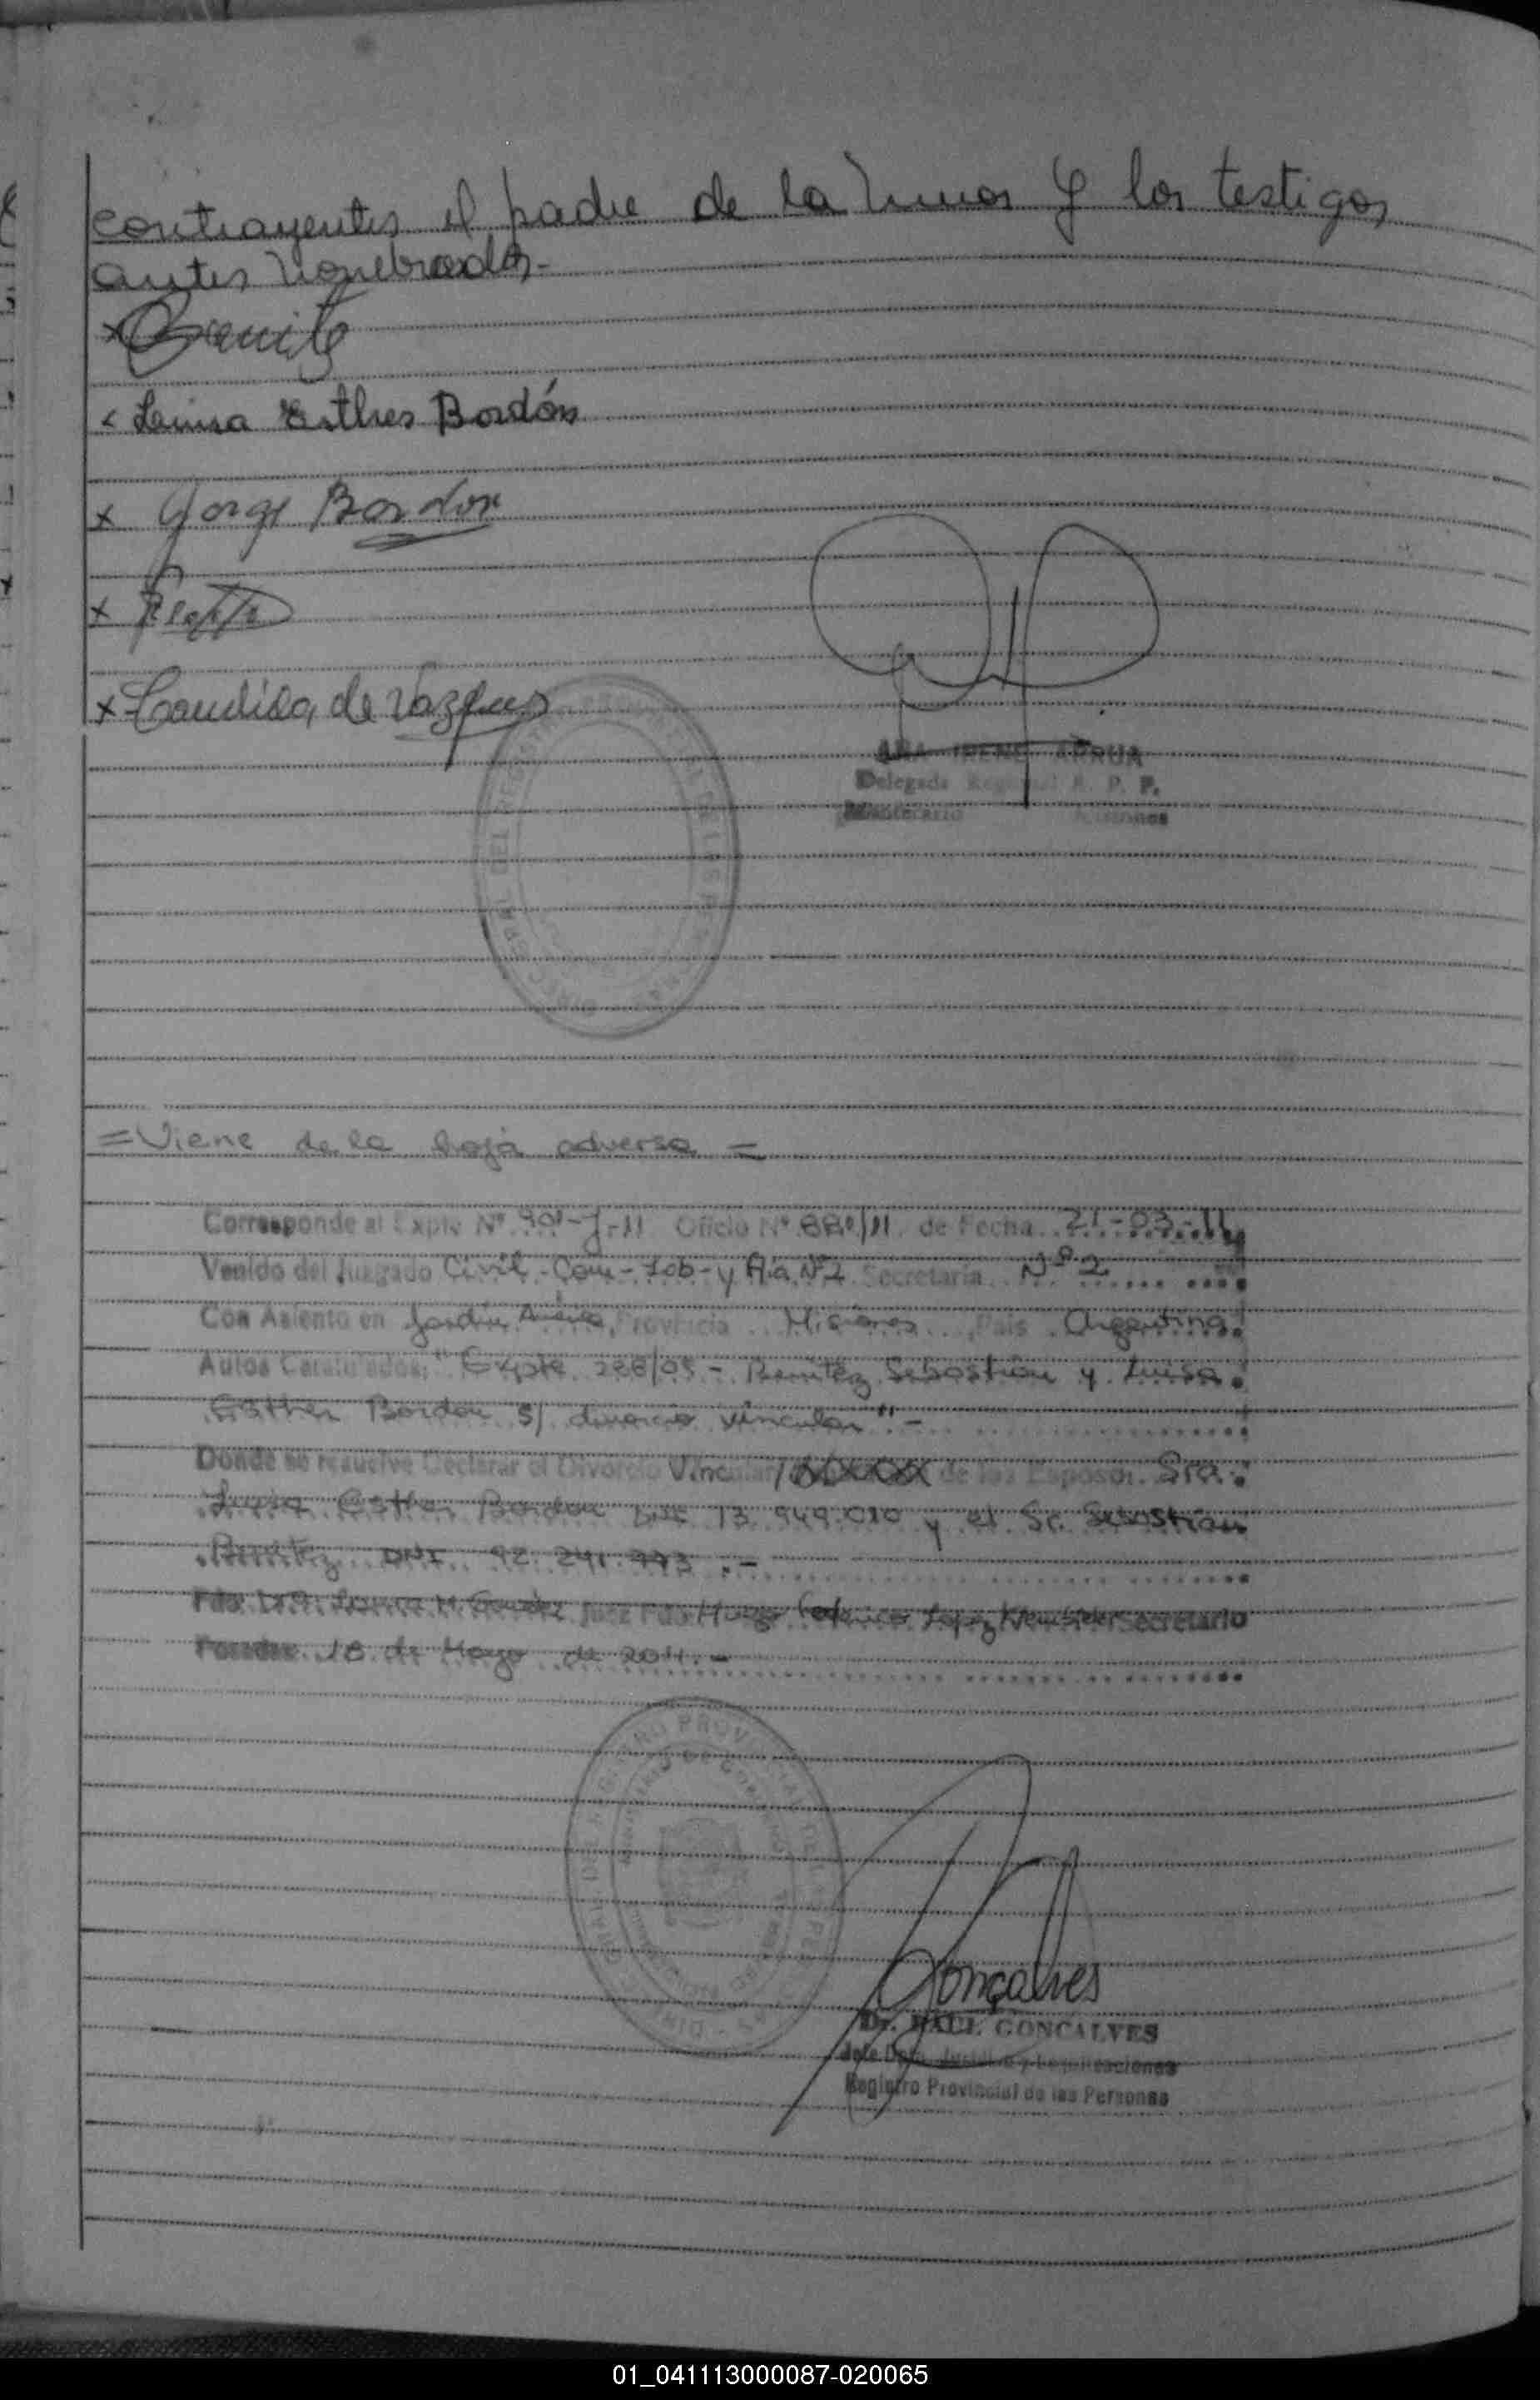 contrayentes el padre de la menor y los testigos
antes nombrados.-
x Benitez
x Luisa Esther Bordón
x Jorge Bordon
x
x Candida de Vazquez
ANA IRENE ARRUA
Delegada Regional R. P. P.
Montecarlo Misiones
= Viene de la hoja adversa =
Corresponde al Expte Nº 901-J-11 Oficio Nº 880/11 de Fecha 21-03-11,
Venido del Juzgado Civil-Com-Lab-y Flia Nº1 Secretaría Nº 2
Con Asiento en Jardín América, Provincia Misiones, País Argentina.
Autos Caratulados: "Expte 286/05 - Benítez Sebastián y Luisa
Esther Bordon s/ divorcio vincular".-
Donde se resuelve Declarar el Divorcio Vincular/ de los Esposos. Sra.
Luisa Esther Bordon DNI 13.949.010 y el Sr. Sebastián
Benítez DNI. 92.241.993 .-
Fdo. Dra. Juez Fdo Hugo Federico Lopez Secretario
Posadas 18 de Mayo de 2011.-
DIRECCION GRAL. DEL REGISTRO PROVINCIAL DE LAS PERSONAS
Gonçalves
Dr. RAUL GONCALVES
Jefe Dpto. Jurídico y Legalizaciones
Registro Provincial de las Personas
01_041113000087-020065